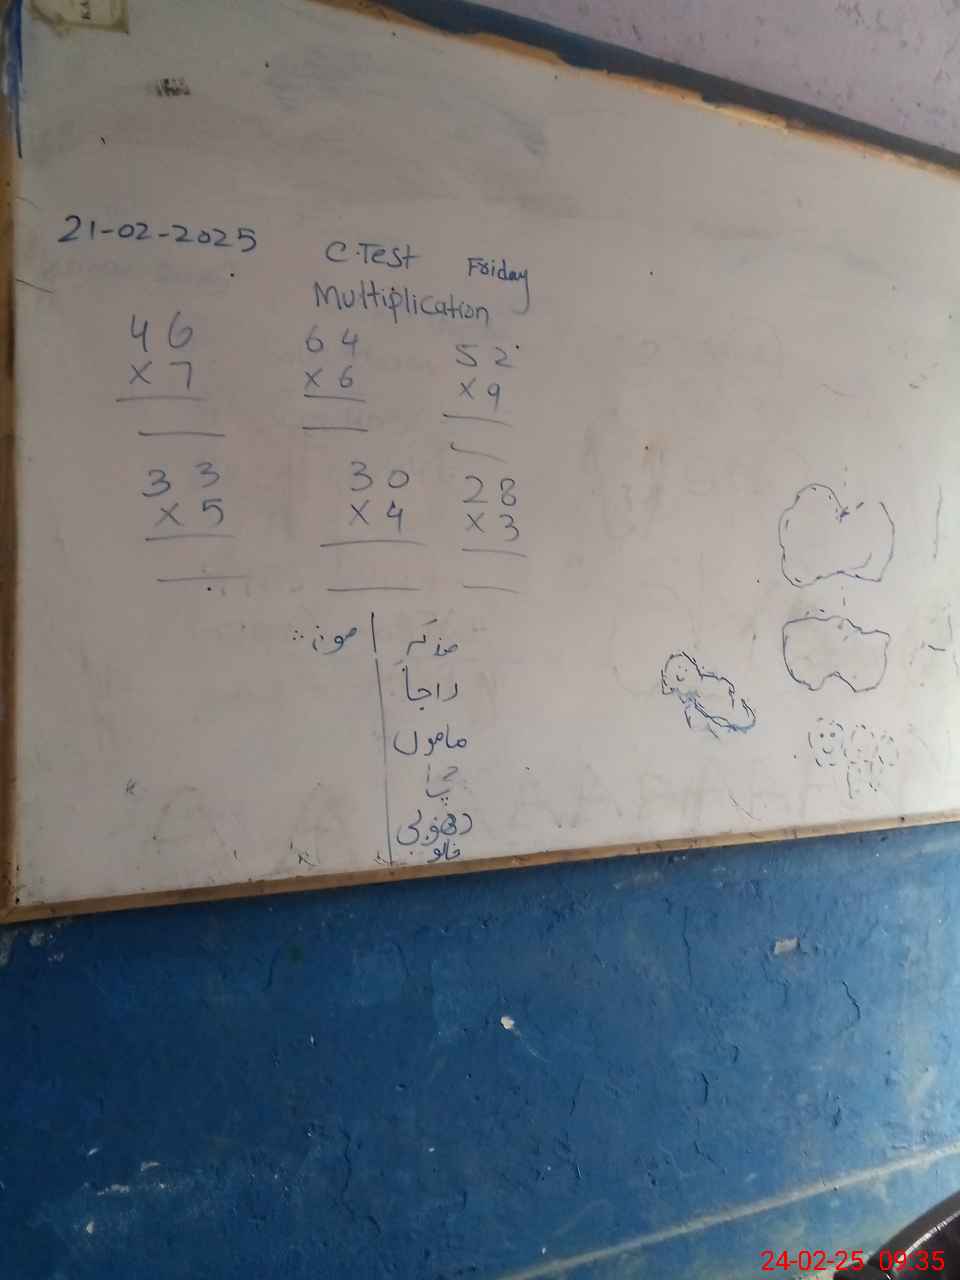 21-02-2025 C.Test Friday
Multiplication
46 64 52
×7 ×6 ×9
33 30 28
×5 ×4 ×3
مذکر مونث
راجا
ماموں
چچا
دھوبی
خالو
24-02-25 09:35